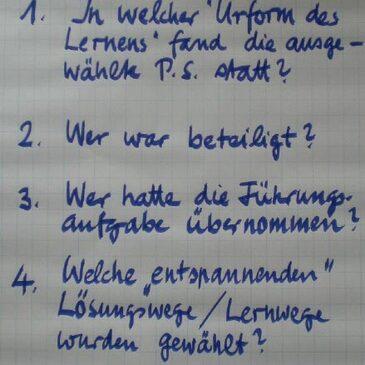 1. In welcher "Urform des
Lernens" fand die ausge-
wählte P.S. statt?
2. Wer war beteiligt?
3. Wer hatte die Führungs-
aufgabe übernommen?
4. Welche „entspannenden"
Lösungswege/Lernwege
wurden gewählt?